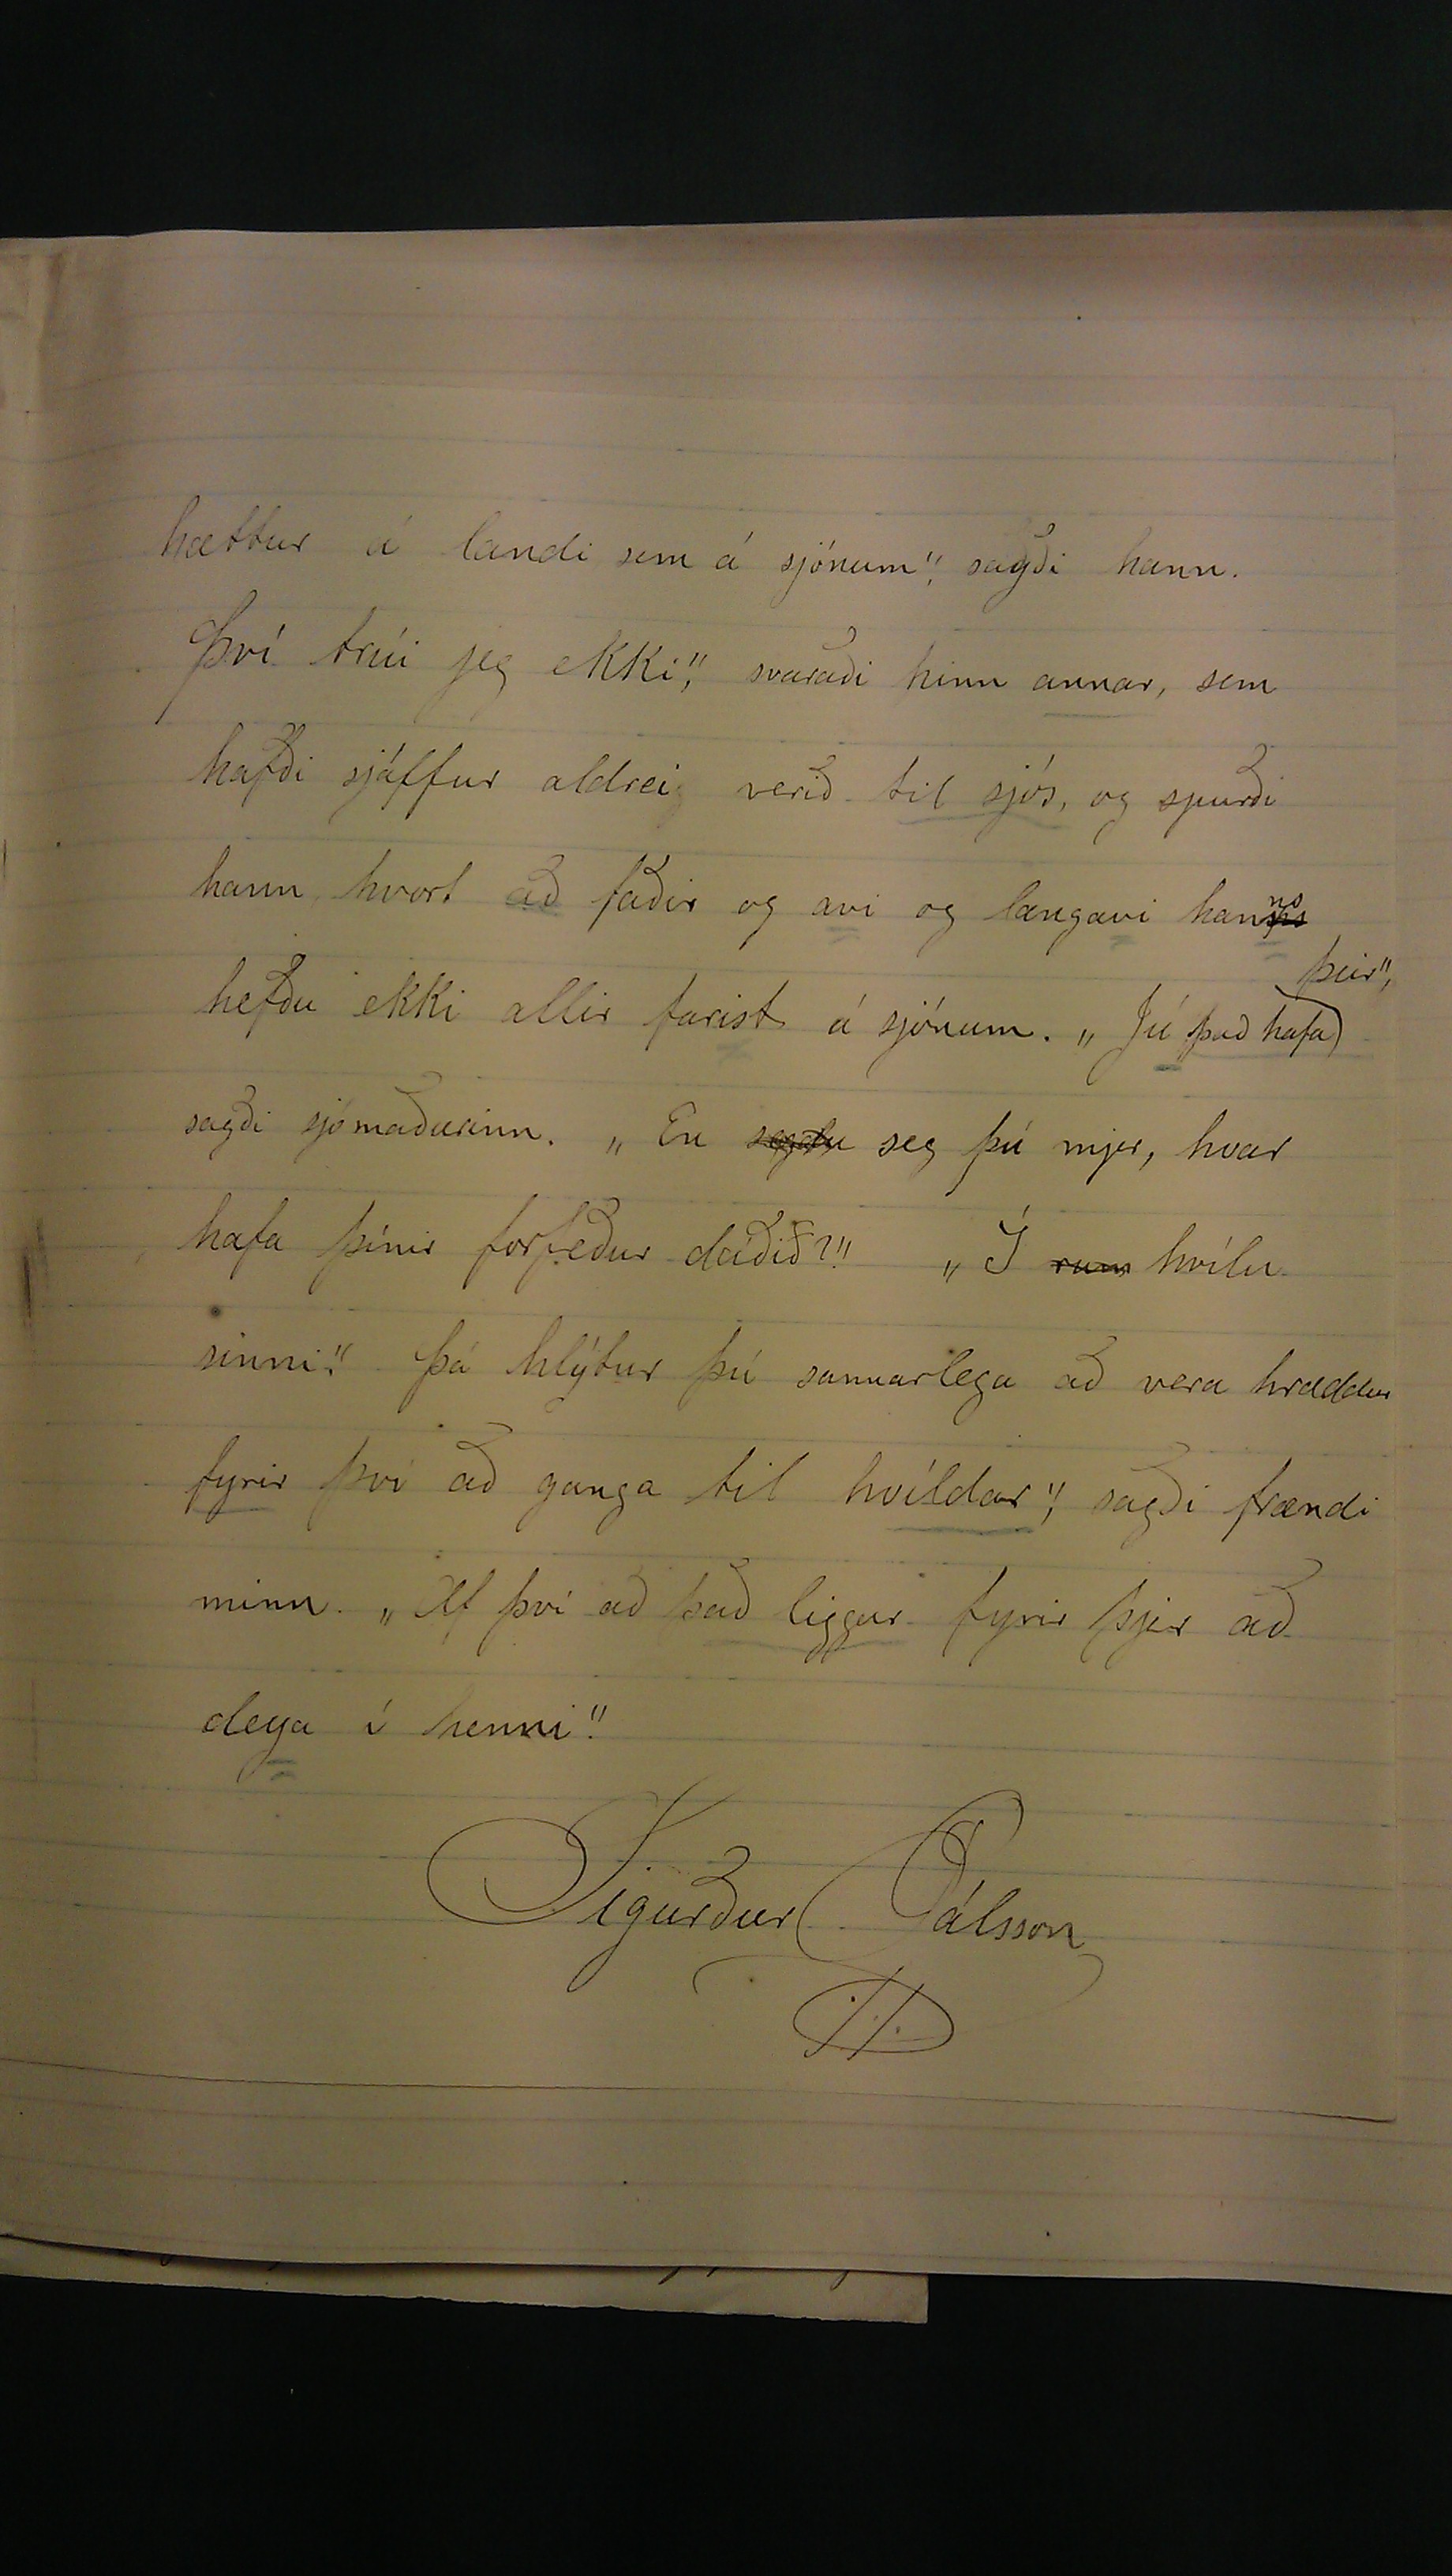 hættur á landi sem á sjónum", sagði hann.
Því trúi jeg ekki", svaraði hinn annar, sem
hafði sjálfur aldrei verið til sjós, og spurði
hann, hvort að faðir og avi og langavi hanns
hefðu ekki allir farist á sjónum. „Jú það hafa þeir",
sagði sjómaðurinn. „En segdu seg þú mjer, hvar
hafa þínir forfeður dáðið?" „Í rum hvílu
sinni". Þá hlýtur þú sannarlega að vera hræddur
fyrir því að ganga til hvíldar", sagði frændi
minn. „Af því að það liggur fyrir þjer að
deya í henni".
Sigurður Pálsson